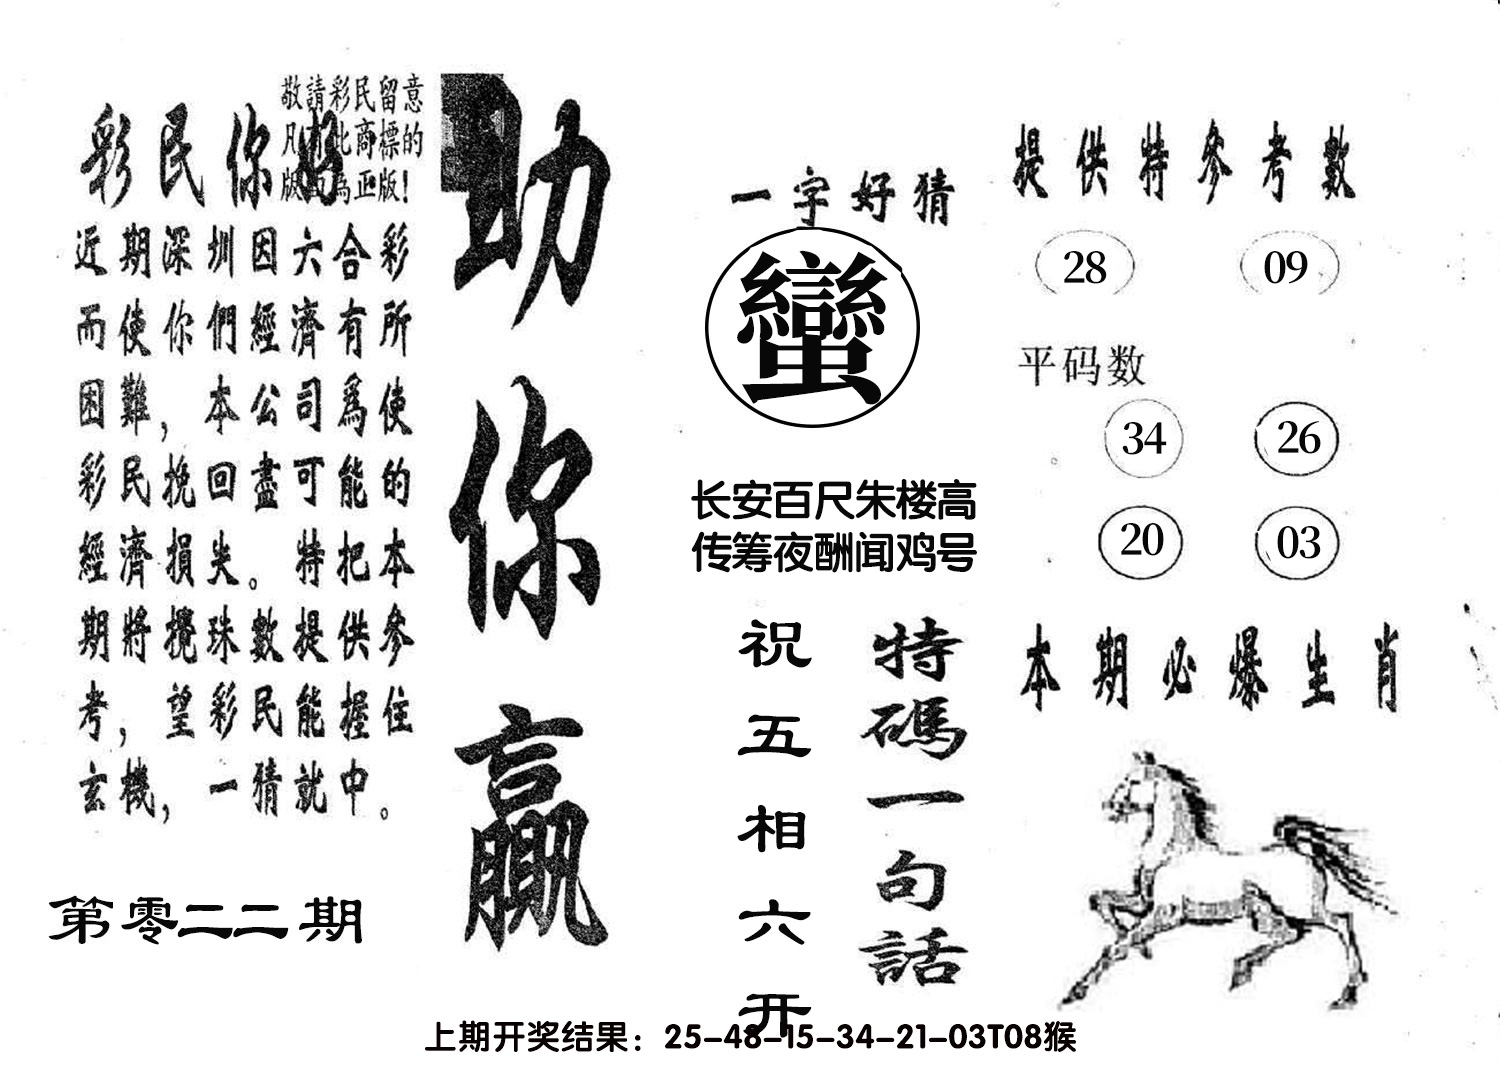 敬請彩民留意
凡有此商標的
版面為正版!
彩民你好
近期深圳因六合彩
而使你們經濟有所
困難,本公司爲使
彩民挽回盡可能的
經濟損失。特把本
期將攪珠數提供參
考,望彩民能握住
玄機,一猜就中。
第零二二期
助你贏
一字好猜
蠻
长安百尺朱楼高
传筹夜酬闻鸡号
特碼一句話
祝五相六开
提供特參考數
28 09
平码数
34 26
20 03
本期必爆生肖
上期开奖结果：25-48-15-34-21-03T08猴